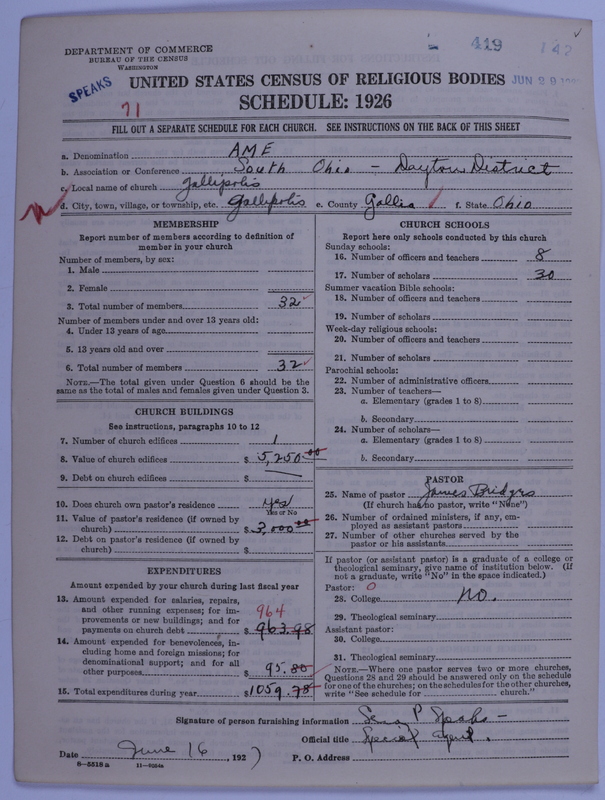 419 142
DEPARTMENT OF COMMERCE
BUREAU OF THE CENSUS
WASHINGTON
SPEAKS
71
UNITED STATES CENSUS OF RELIGIOUS BODIES
JUN 29
SCHEDULE: 1926
FILL OUT A SEPARATE SCHEDULE FOR EACH CHURCH. SEE INSTRUCTIONS ON THE BACK OF THIS SHEET
a. Denomination AME
b. Association or Conference South Ohio – Dayton District
c. Local name of church Gallipolis
d. City, town, village, or township, etc. Gallipolis e. County Gallia f. State Ohio
MEMBERSHIP
Report number of members according to definition of
member in your church
Number of members, by sex:
1. Male
2. Female
3. Total number of members 32
Number of members under and over 13 years old:
4. Under 13 years of age
5. 13 years old and over
6. Total number of members 32
NOTE.—The total given under Question 6 should be the
same as the total of males and females given under Question 3.
CHURCH BUILDINGS
See instructions, paragraphs 10 to 12
7. Number of church edifices 1
8. Value of church edifices $ 5,250.00
9. Debt on church edifices $
10. Does church own pastor's residence Yes
Yes or No
11. Value of pastor's residence (if owned by
church) $ 3,000.00
12. Debt on pastor's residence (if owned by
church) $
EXPENDITURES
Amount expended by your church during last fiscal year
13. Amount expended for salaries, repairs,
and other running expenses; for im-
provements or new buildings; and for
payments on church debt $ 963.98
964
14. Amount expended for benevolences, in-
cluding home and foreign missions; for
denominational support; and for all
other purposes $ 95.80
15. Total expenditures during year $ 1059.78
CHURCH SCHOOLS
Report here only schools conducted by this church
Sunday schools:
16. Number of officers and teachers 8
17. Number of scholars 30
Summer vacation Bible schools:
18. Number of officers and teachers
19. Number of scholars
Week-day religious schools:
20. Number of officers and teachers
21. Number of scholars
Parochial schools:
22. Number of administrative officers
23. Number of teachers—
a. Elementary (grades 1 to 8)
b. Secondary
24. Number of scholars—
a. Elementary (grades 1 to 8)
b. Secondary
PASTOR
25. Name of pastor James Bridges
(If church has no pastor, write "None")
26. Number of ordained ministers, if any, em-
ployed as assistant pastors
27. Number of other churches served by the
pastor or his assistants
If pastor (or assistant pastor) is a graduate of a college or
theological seminary, give name of institution below. (If
not a graduate, write "No" in the space indicated.)
Pastor: 0
28. College No.
29. Theological seminary
Assistant pastor:
30. College
31. Theological seminary
NOTE.—Where one pastor serves two or more churches,
Questions 28 and 29 should be answered only on the schedule
for one of the churches; on the schedules for the other churches,
write "See schedule for church."
Signature of person furnishing information P Speaks
Official title Special Agent.
Date June 16, 1927 P. O. Address
6—5518a 11—9054a